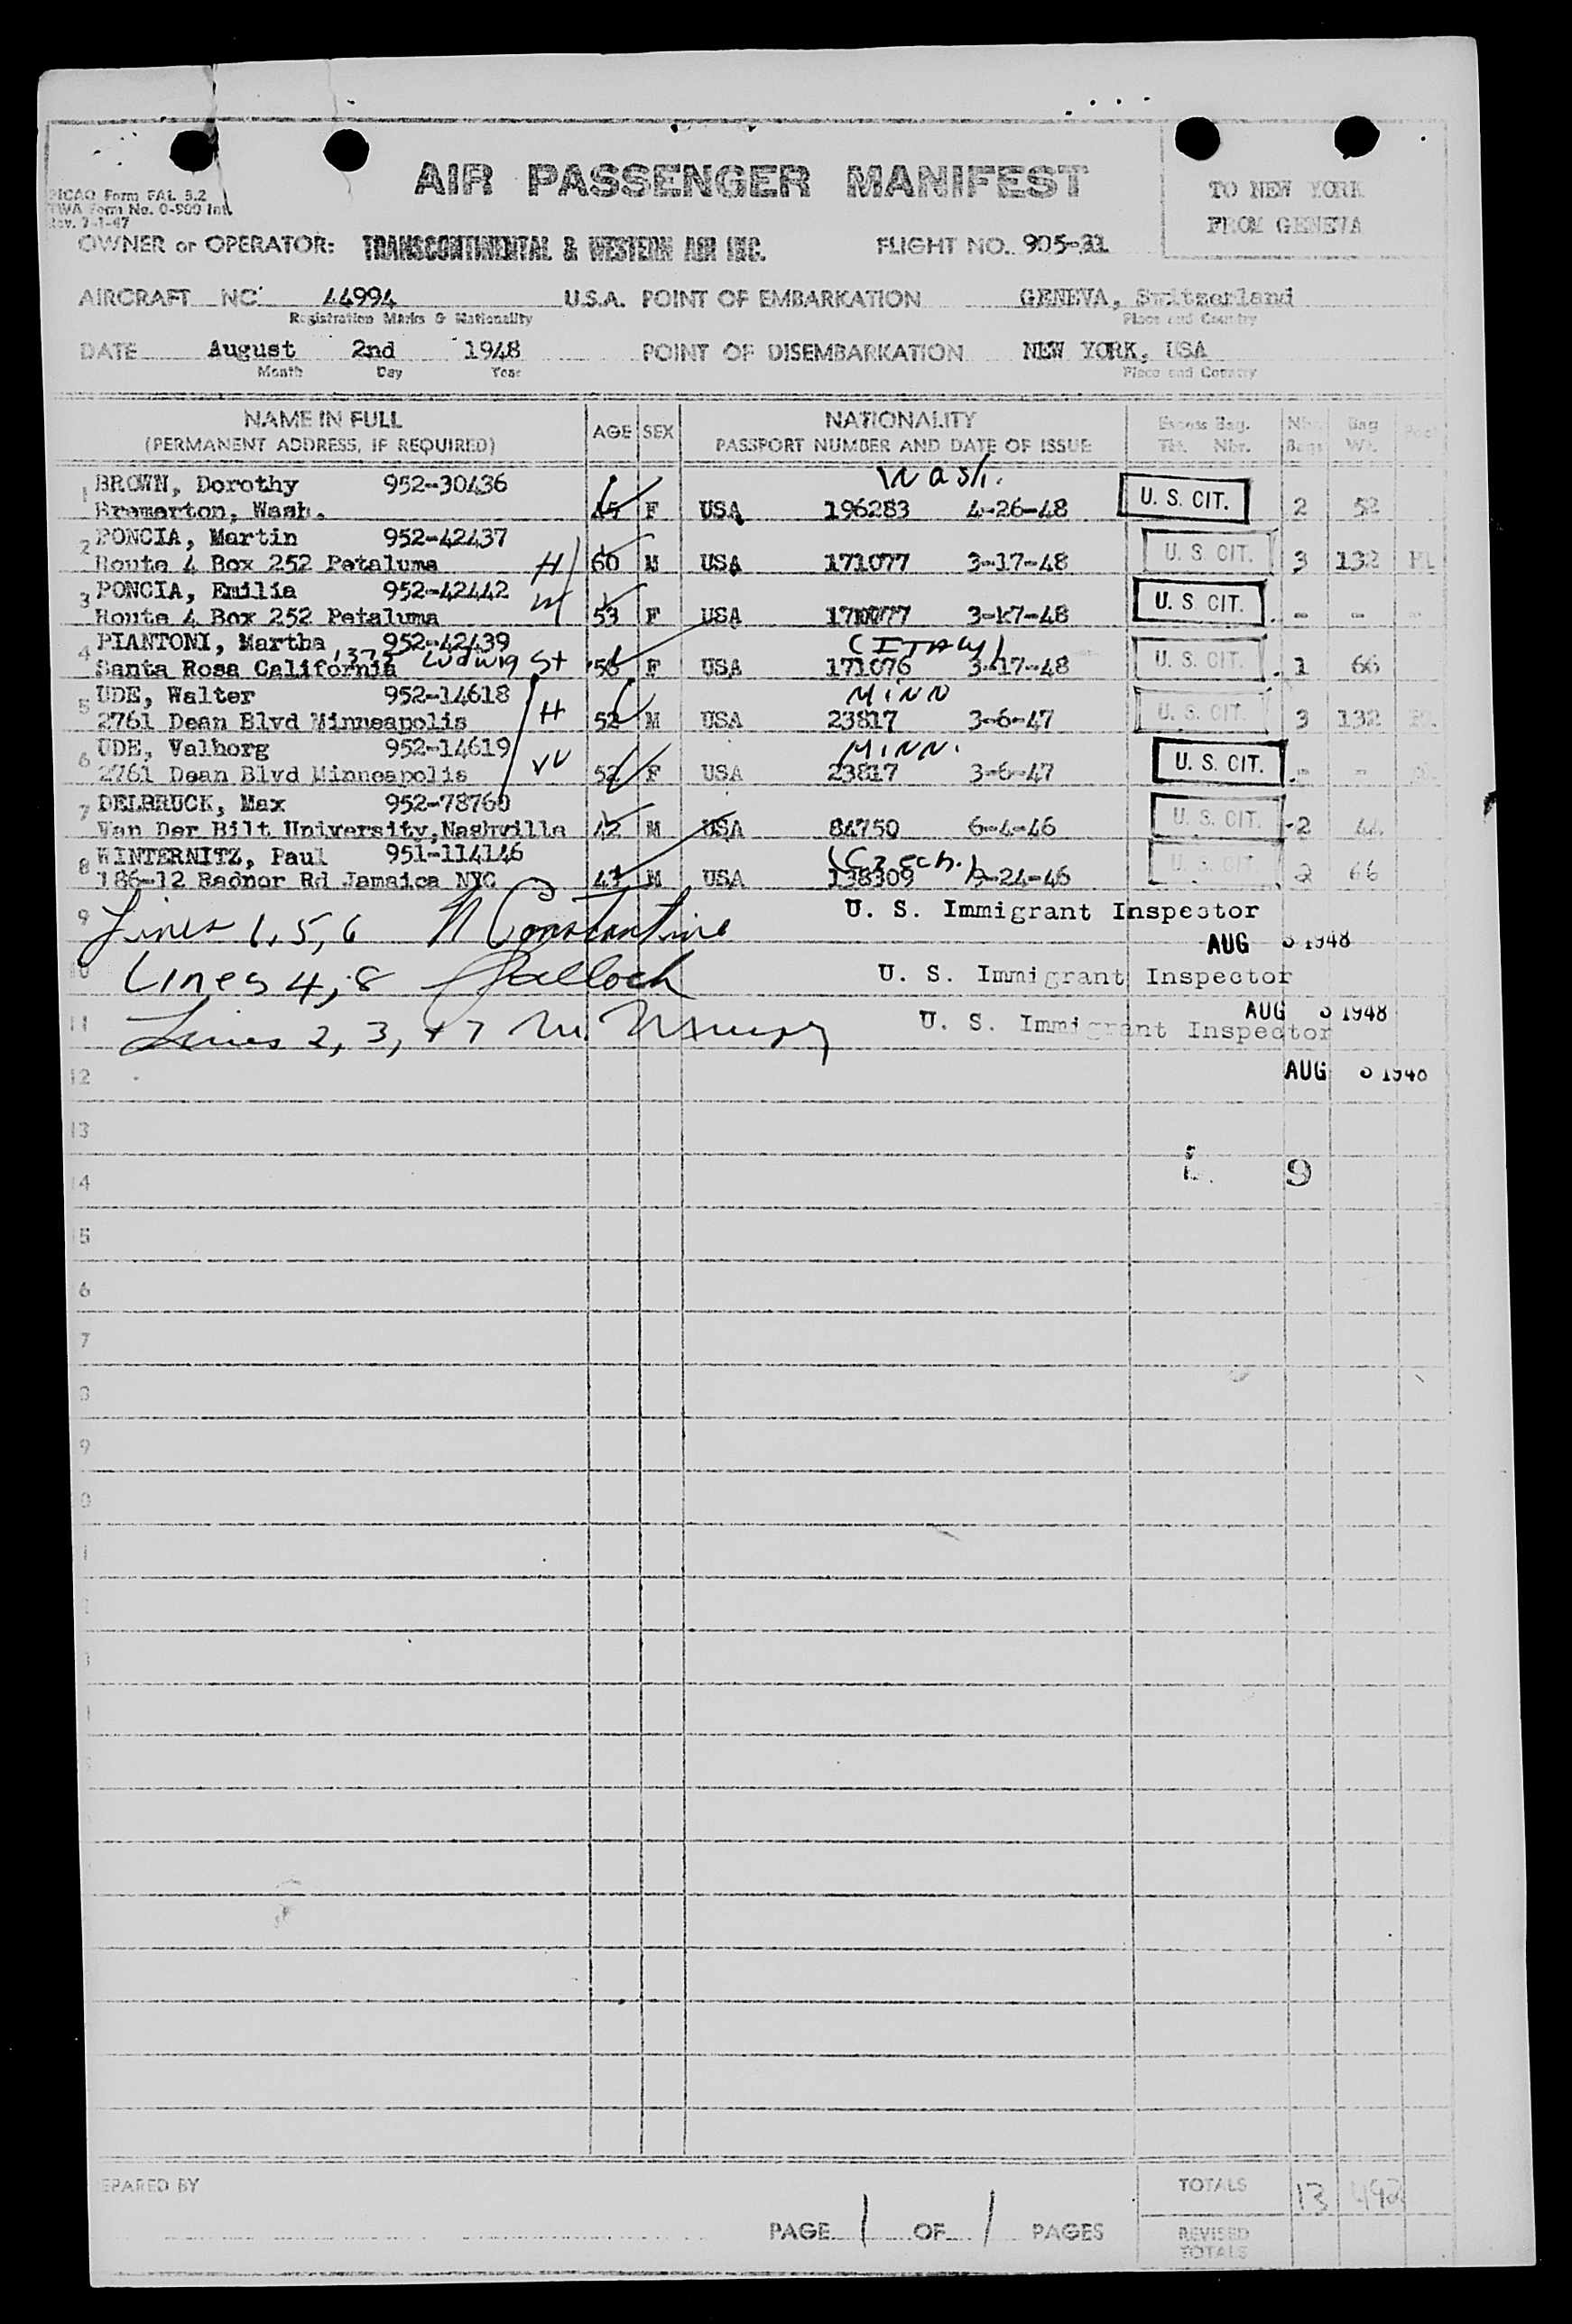 PICAO Form FAL 3.2
TWA Form No. 0-900 Int.
Rev. 7-1-47
AIR PASSENGER MANIFEST
TO NEW YORK
FROM GENEVA
OWNER or OPERATOR: TRANSCONTINENTAL & WESTERN AIR INC. FLIGHT NO. 905-31
AIRCRAFT NC 44994 U.S.A. POINT OF EMBARKATION GENEVA, Switzerland
Registration Marks & Nationality Place and Country
DATE August 2nd 1948 POINT OF DISEMBARKATION NEW YORK, USA
Month Day Year Place and Country
NAME IN FULL AGE SEX NATIONALITY Excess Bag. Nbr. Bag
(PERMANENT ADDRESS, IF REQUIRED) PASSPORT NUMBER AND DATE OF ISSUE Nbr. Bags Wt.
Wash.
1 BROWN, Dorothy 952-30436
Bremerton, Wash. 45 F USA 196283 4-26-48 U. S. CIT. 2 52
2 PONCIA, Martin 952-42437
Route 4 Box 252 Petaluma H 60 M USA 171077 3-17-48 U. S. CIT. 3 132
3 PONCIA, Emilia 952-42442
Route 4 Box 252 Petaluma W 53 F USA 171077 3-17-48 U. S. CIT. - -
4 PIANTONI, Martha 952-42439 (ITALY)
Santa Rosa California Ludwig St 56 F USA 171076 3-17-48 U. S. CIT. 1 66
5 UDE, Walter 952-14618 MINN
2761 Dean Blvd Minneapolis H 52 M USA 23817 3-6-47 U. S. CIT. 3 132
6 UDE, Valborg 952-14619 MINN.
2761 Dean Blvd Minneapolis W 52 F USA 23817 3-6-47 U. S. CIT. - -
7 DELBRUCK, Max 952-78760
Van Der Bilt University, Nashville 42 M USA 84750 6-4-46 U. S. CIT. 2 44
8 WINTERNITZ, Paul 951-114146 (Czech.)
186-12 Radnor Rd Jamaica NYC 47 M USA 138309 9-24-46 U. S. CIT. 2 66
9 Lines 1, 5, 6 N Constantine U. S. Immigrant Inspector
AUG 3 1948
10 Lines 4, 8 U. S. Immigrant Inspector
AUG 3 1948
11 Lines 2, 3, + 7 U. S. Immigrant Inspector
12 AUG 3 1948
13
4 9
5
6
7
8
9
0
PREPARED BY TOTALS 13 492
PAGE 1 OF 1 PAGES REVISED
TOTALS